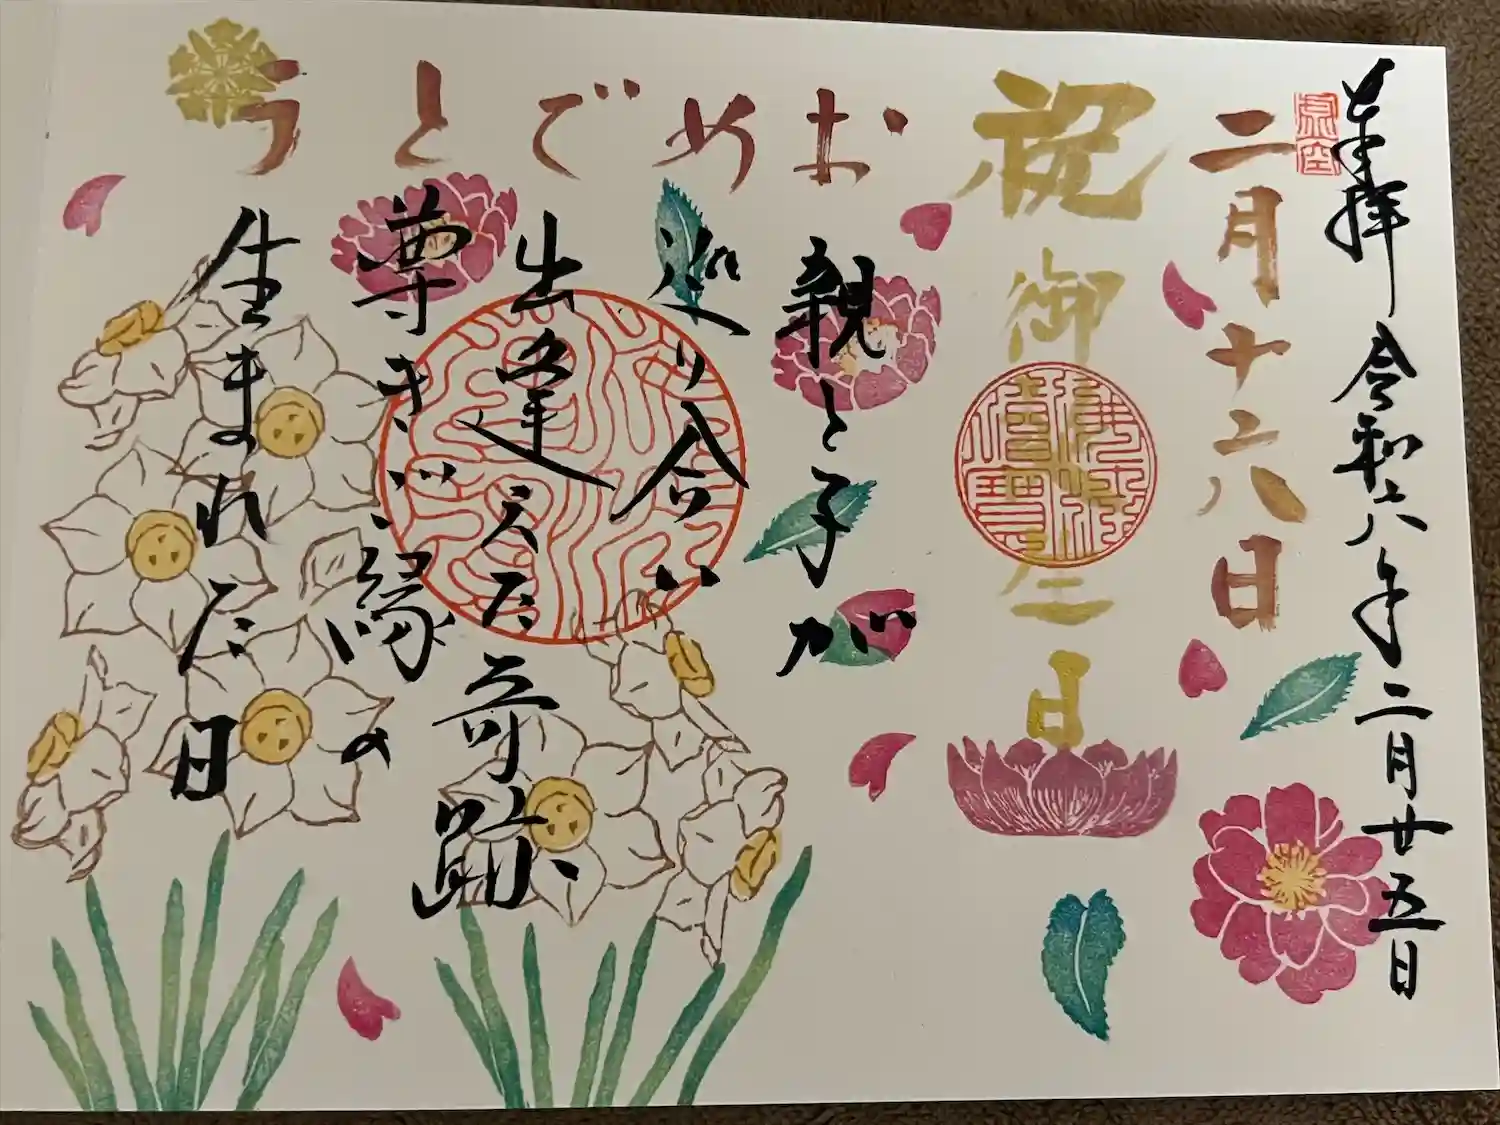 奉拝 令和六年二月廿五日
二月十六日
祝御誕生日
おめでとう
親と子が
巡り合い
出逢えた奇跡、
尊きご縁の
生まれた日